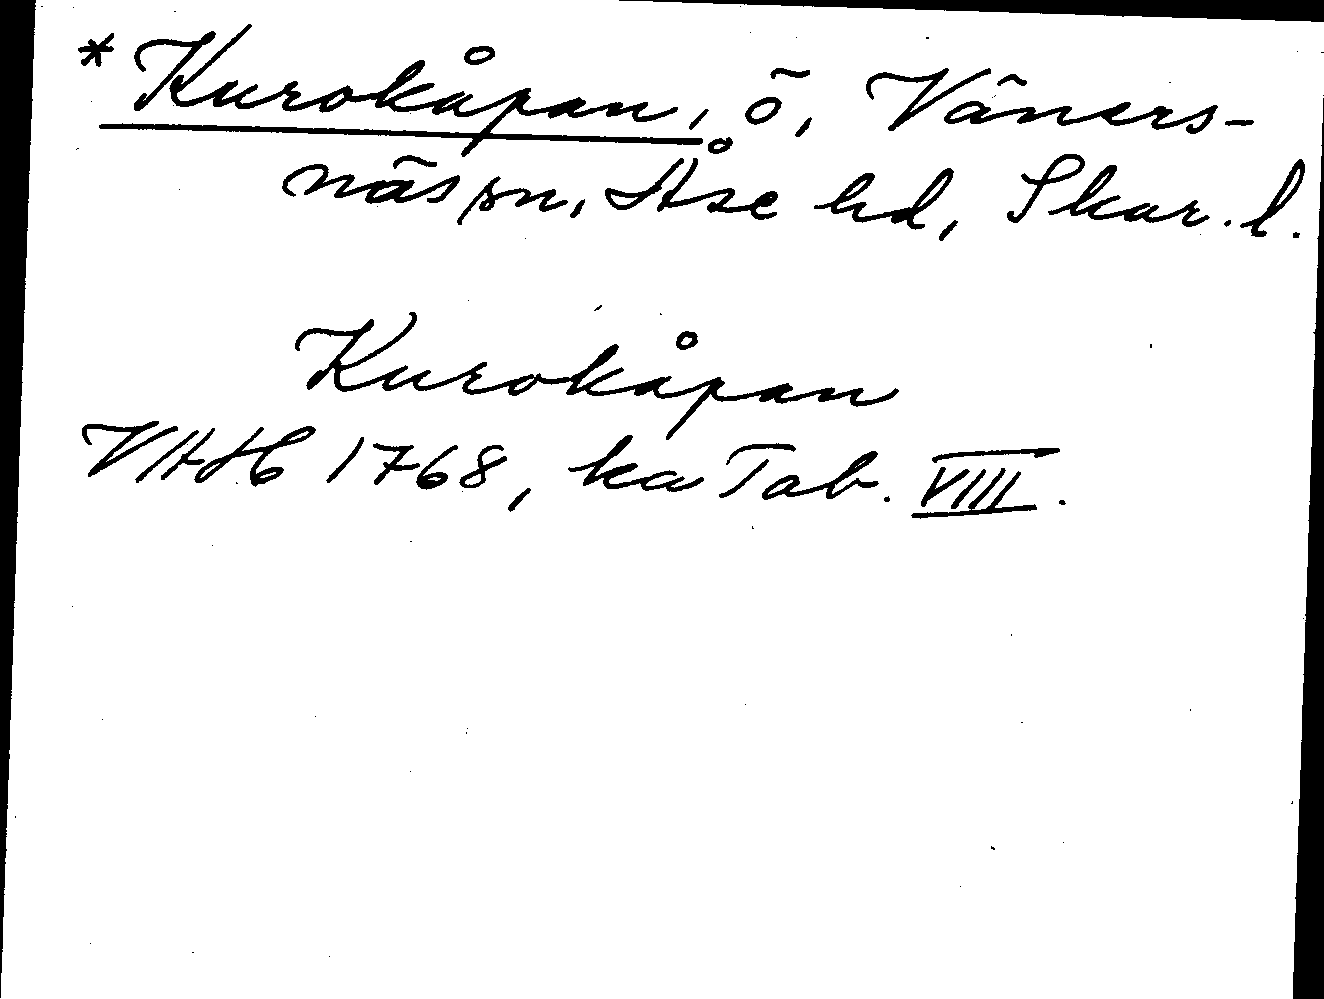 * Kurokåpan, ö, Väners-
näs sn, Åse hd, Skar. l.
Kurokåpan
VHH 1768, ka Tab. VIII.